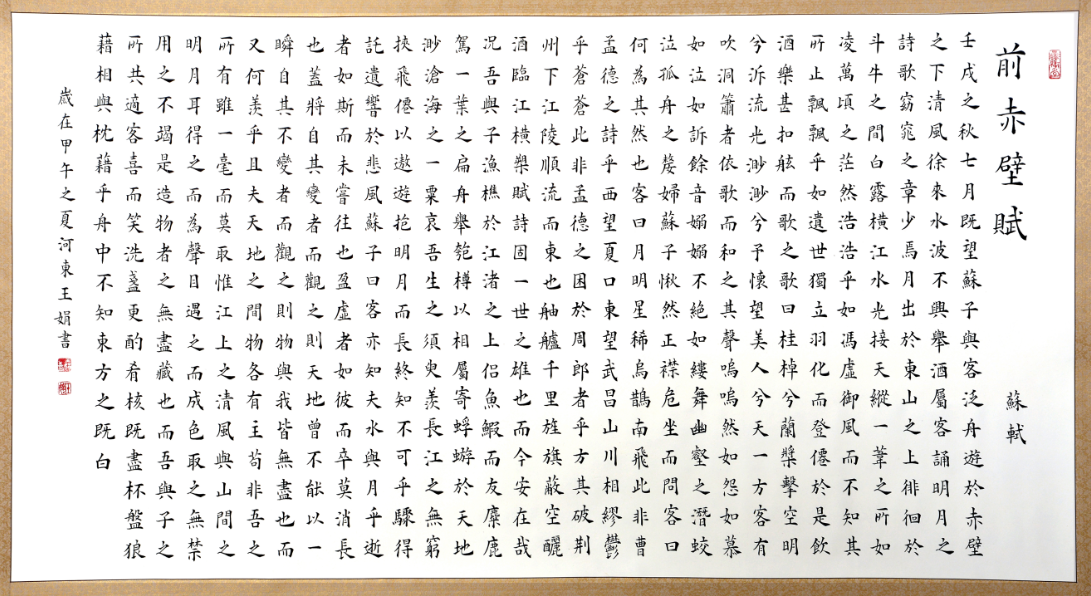 前赤壁賦
蘇軾
壬戌之秋七月既望蘇子與客泛舟遊於赤壁
之下清風徐來水波不興舉酒屬客誦明月之
詩歌窈窕之章少焉月出於東山之上徘徊於
斗牛之間白露橫江水光接天縱一葦之所如
凌萬頃之茫然浩浩乎如馮虛御風而不知其
所止飄飄乎如遺世獨立羽化而登僊於是飲
酒樂甚扣舷而歌之歌曰桂棹兮蘭槳擊空明
兮泝流光渺渺兮予懷望美人兮天一方客有
吹洞簫者依歌而和之其聲嗚嗚然如怨如慕
如泣如訴餘音嫋嫋不絕如縷舞幽壑之潛蛟
泣孤舟之嫠婦蘇子愀然正襟危坐而問客曰
何為其然也客曰月明星稀烏鵲南飛此非曹
孟德之詩乎西望夏口東望武昌山川相繆鬱
乎蒼蒼此非孟德之困於周郎者乎方其破荆
州下江陵順流而東也舳艫千里旌旗蔽空釃
酒臨江橫槊賦詩固一世之雄也而今安在哉
況吾與子漁樵於江渚之上侶魚鰕而友麋鹿
駕一葉之扁舟舉匏樽以相屬寄蜉蝣於天地
渺滄海之一粟哀吾生之須臾羨長江之無窮
挾飛僊以遨遊抱明月而長終知不可乎驟得
託遺響於悲風蘇子曰客亦知夫水與月乎逝
者如斯而未嘗往也盈虛者如彼而卒莫消長
也蓋將自其變者而觀之則天地曾不能以一
瞬自其不變者而觀之則物與我皆無盡也而
又何羨乎且夫天地之間物各有主苟非吾之
所有雖一毫而莫取惟江上之清風與山間之
明月耳得之而為聲目遇之而成色取之無禁
用之不竭是造物者之無盡藏也而吾與子之
所共適客喜而笑洗盞更酌肴核既盡杯盤狼
藉相與枕藉乎舟中不知東方之既白
歲在甲午之夏河東王娟書